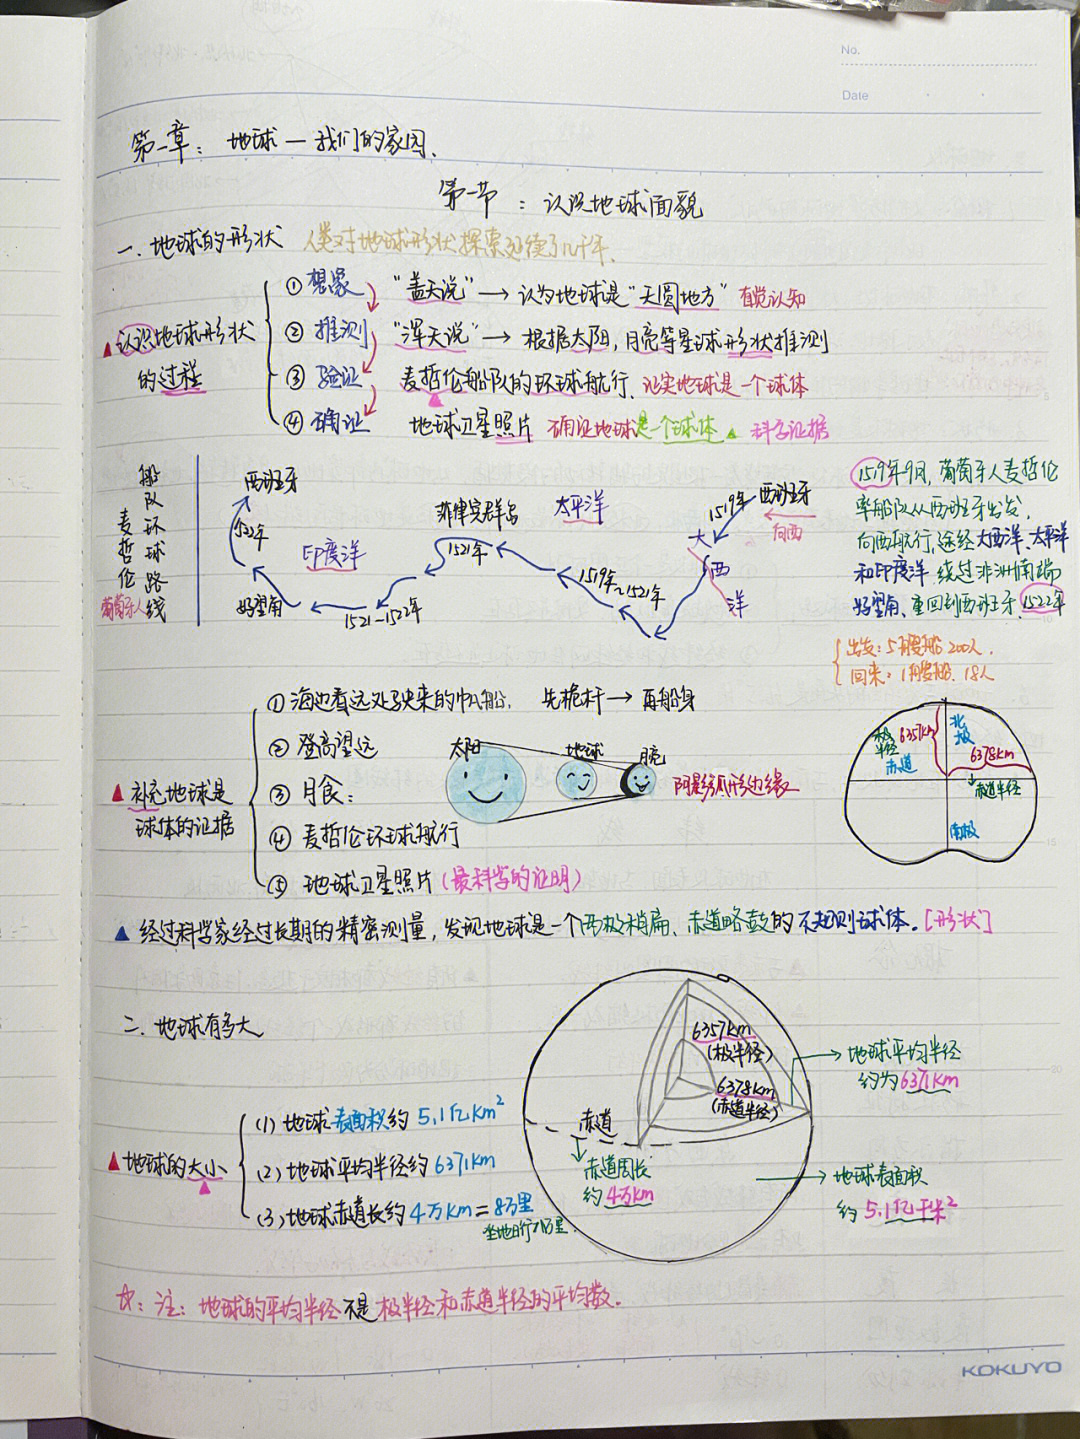 No.
Date
第一章：地球—我们的家园、
第一节：认识地球面貌
一.地球的形状 人类对地球形状探索延续了几千年.
▲认识地球形状的过程
①想象 "盖天说"→认为地球是"天圆地方" 直觉认知
②推测 "浑天说"→根据太阳,月亮等星球形状推测
③验证 麦哲伦船队的环球航行、证实地球是一个球体
④确证 地球卫星照片 确证地球是一个球体 科学证据
葡萄牙人麦哲伦
船队环球路线
西班牙
1522年
好望角
印度洋
1521—1522年
菲律宾群岛
1521年
太平洋
1519年~1521年
大西洋
1519年
西班牙
向西
1519年9月,葡萄牙人麦哲伦
率船队从西班牙出发,
向西航行,途经大西洋、太平洋
和印度洋 绕过非洲南端
好望角、重回到西班牙.1522年
出发:5艘船 200人.
回来:1艘船、18人
▲补充地球是
球体的证据
①海边看远处驶来的帆船, 先桅杆→再船身
②登高望远
③月食:
太阳
地球
月亮
阴影弧形边缘
④麦哲伦环球航行
⑤地球卫星照片(最科学的证明)
极半径
6357km
北极
6378km
赤道
赤道半径
南极
▲经过科学家经过长期的精密测量,发现地球是一个两极稍扁、赤道略鼓的不规则球体.[形状]
二.地球有多大
▲地球的大小
(1)地球表面积约5.1亿km²
(2)地球平均半径约6371km
(3)地球赤道长约4万km=8万里
坐地日行八万里
6357km
(极半径)
6378km
(赤道半径)
→地球平均半径
约为6371km
赤道
赤道周长
约4万km
→地球表面积
约5.1亿千米²
☆:注:地球的平均半径不是极半径和赤道半径的平均数.
KOKUYO